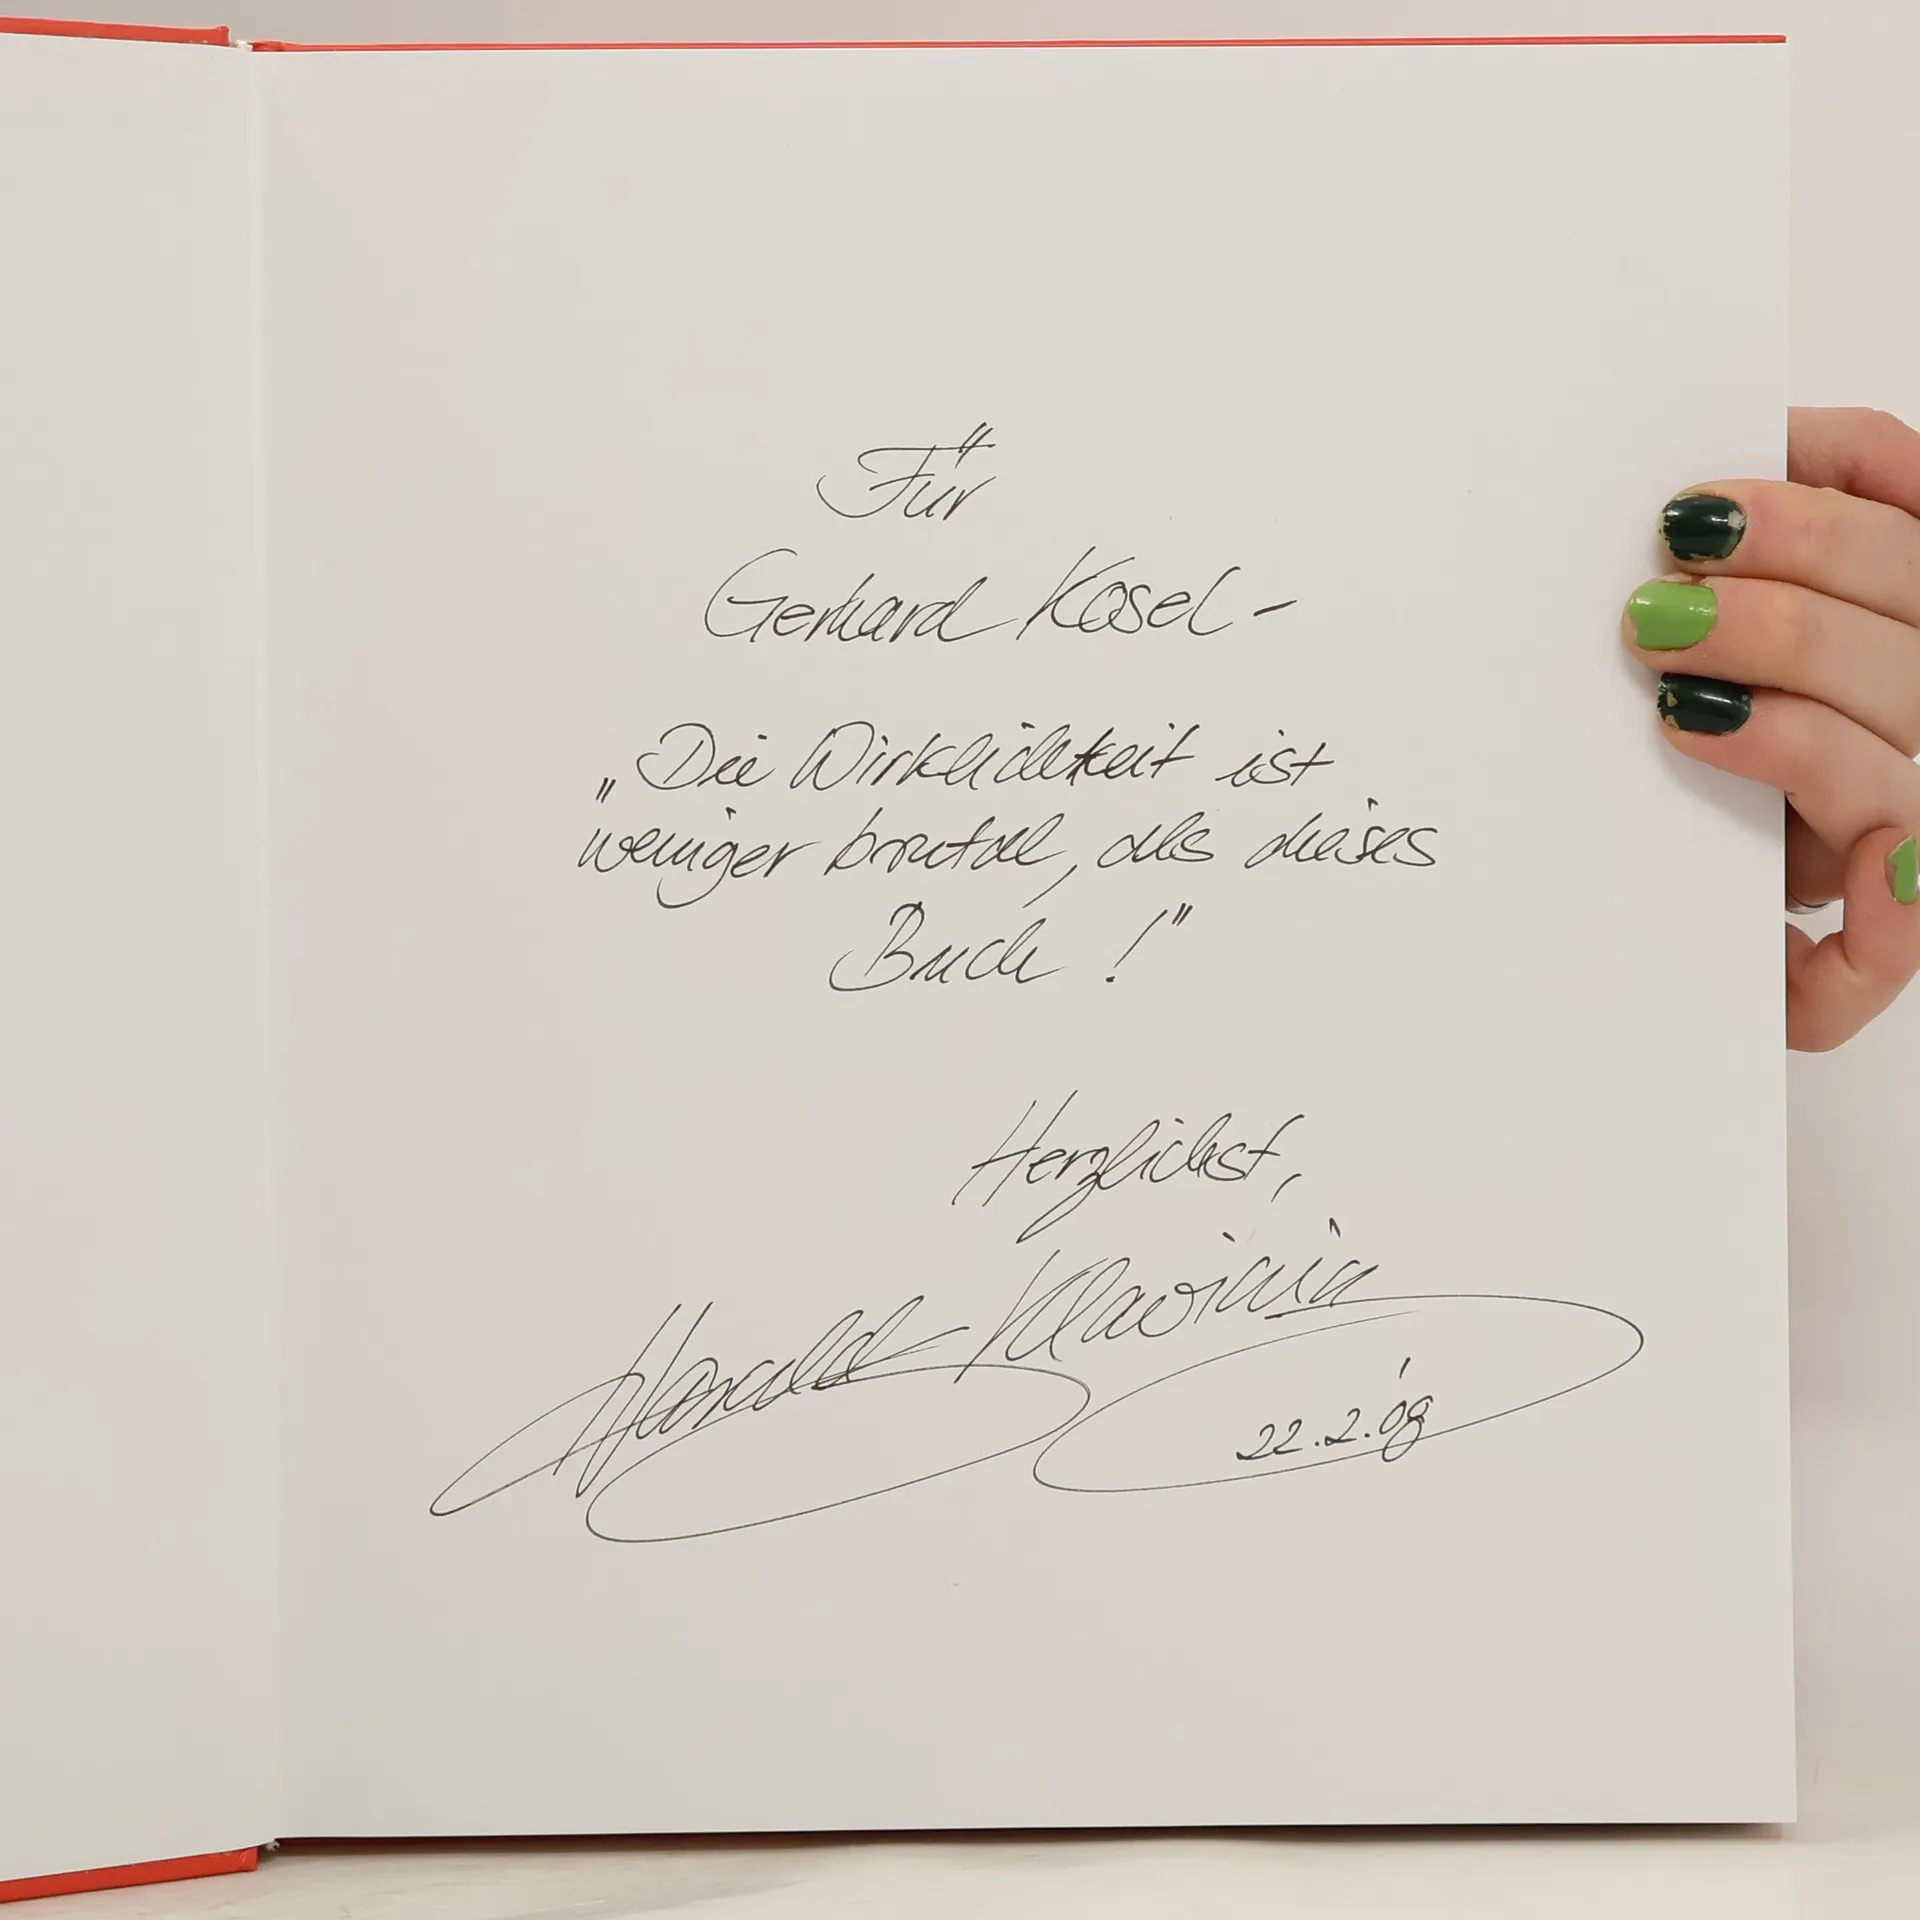 Für
Gerhard Kosel -
„Die Wirklichkeit ist
weniger brutal, als dieses
Buch !"
Herzlichst,
Harald Klavinin
22.2.'08